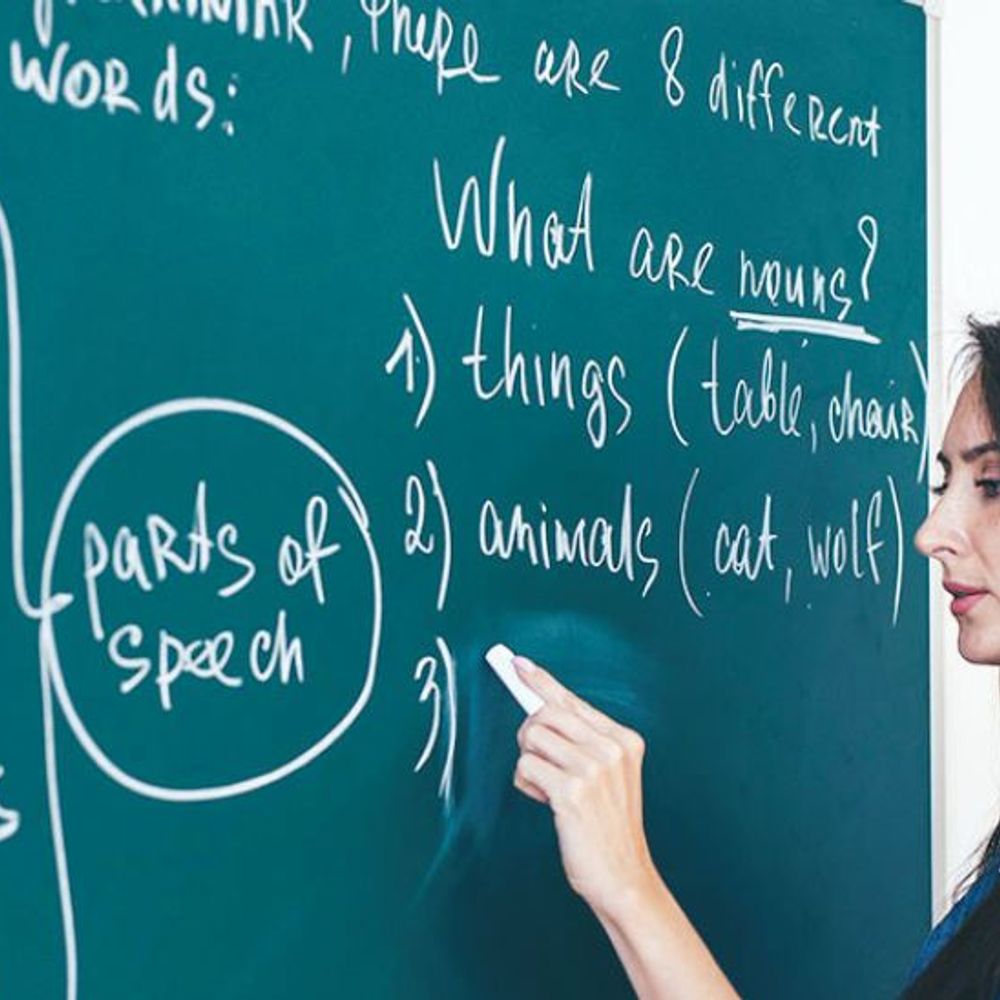 grammar, there are 8 different
words:
What are nouns?
1) things (table, chair)
2) animals (cat, wolf)
3)
parts of
speech